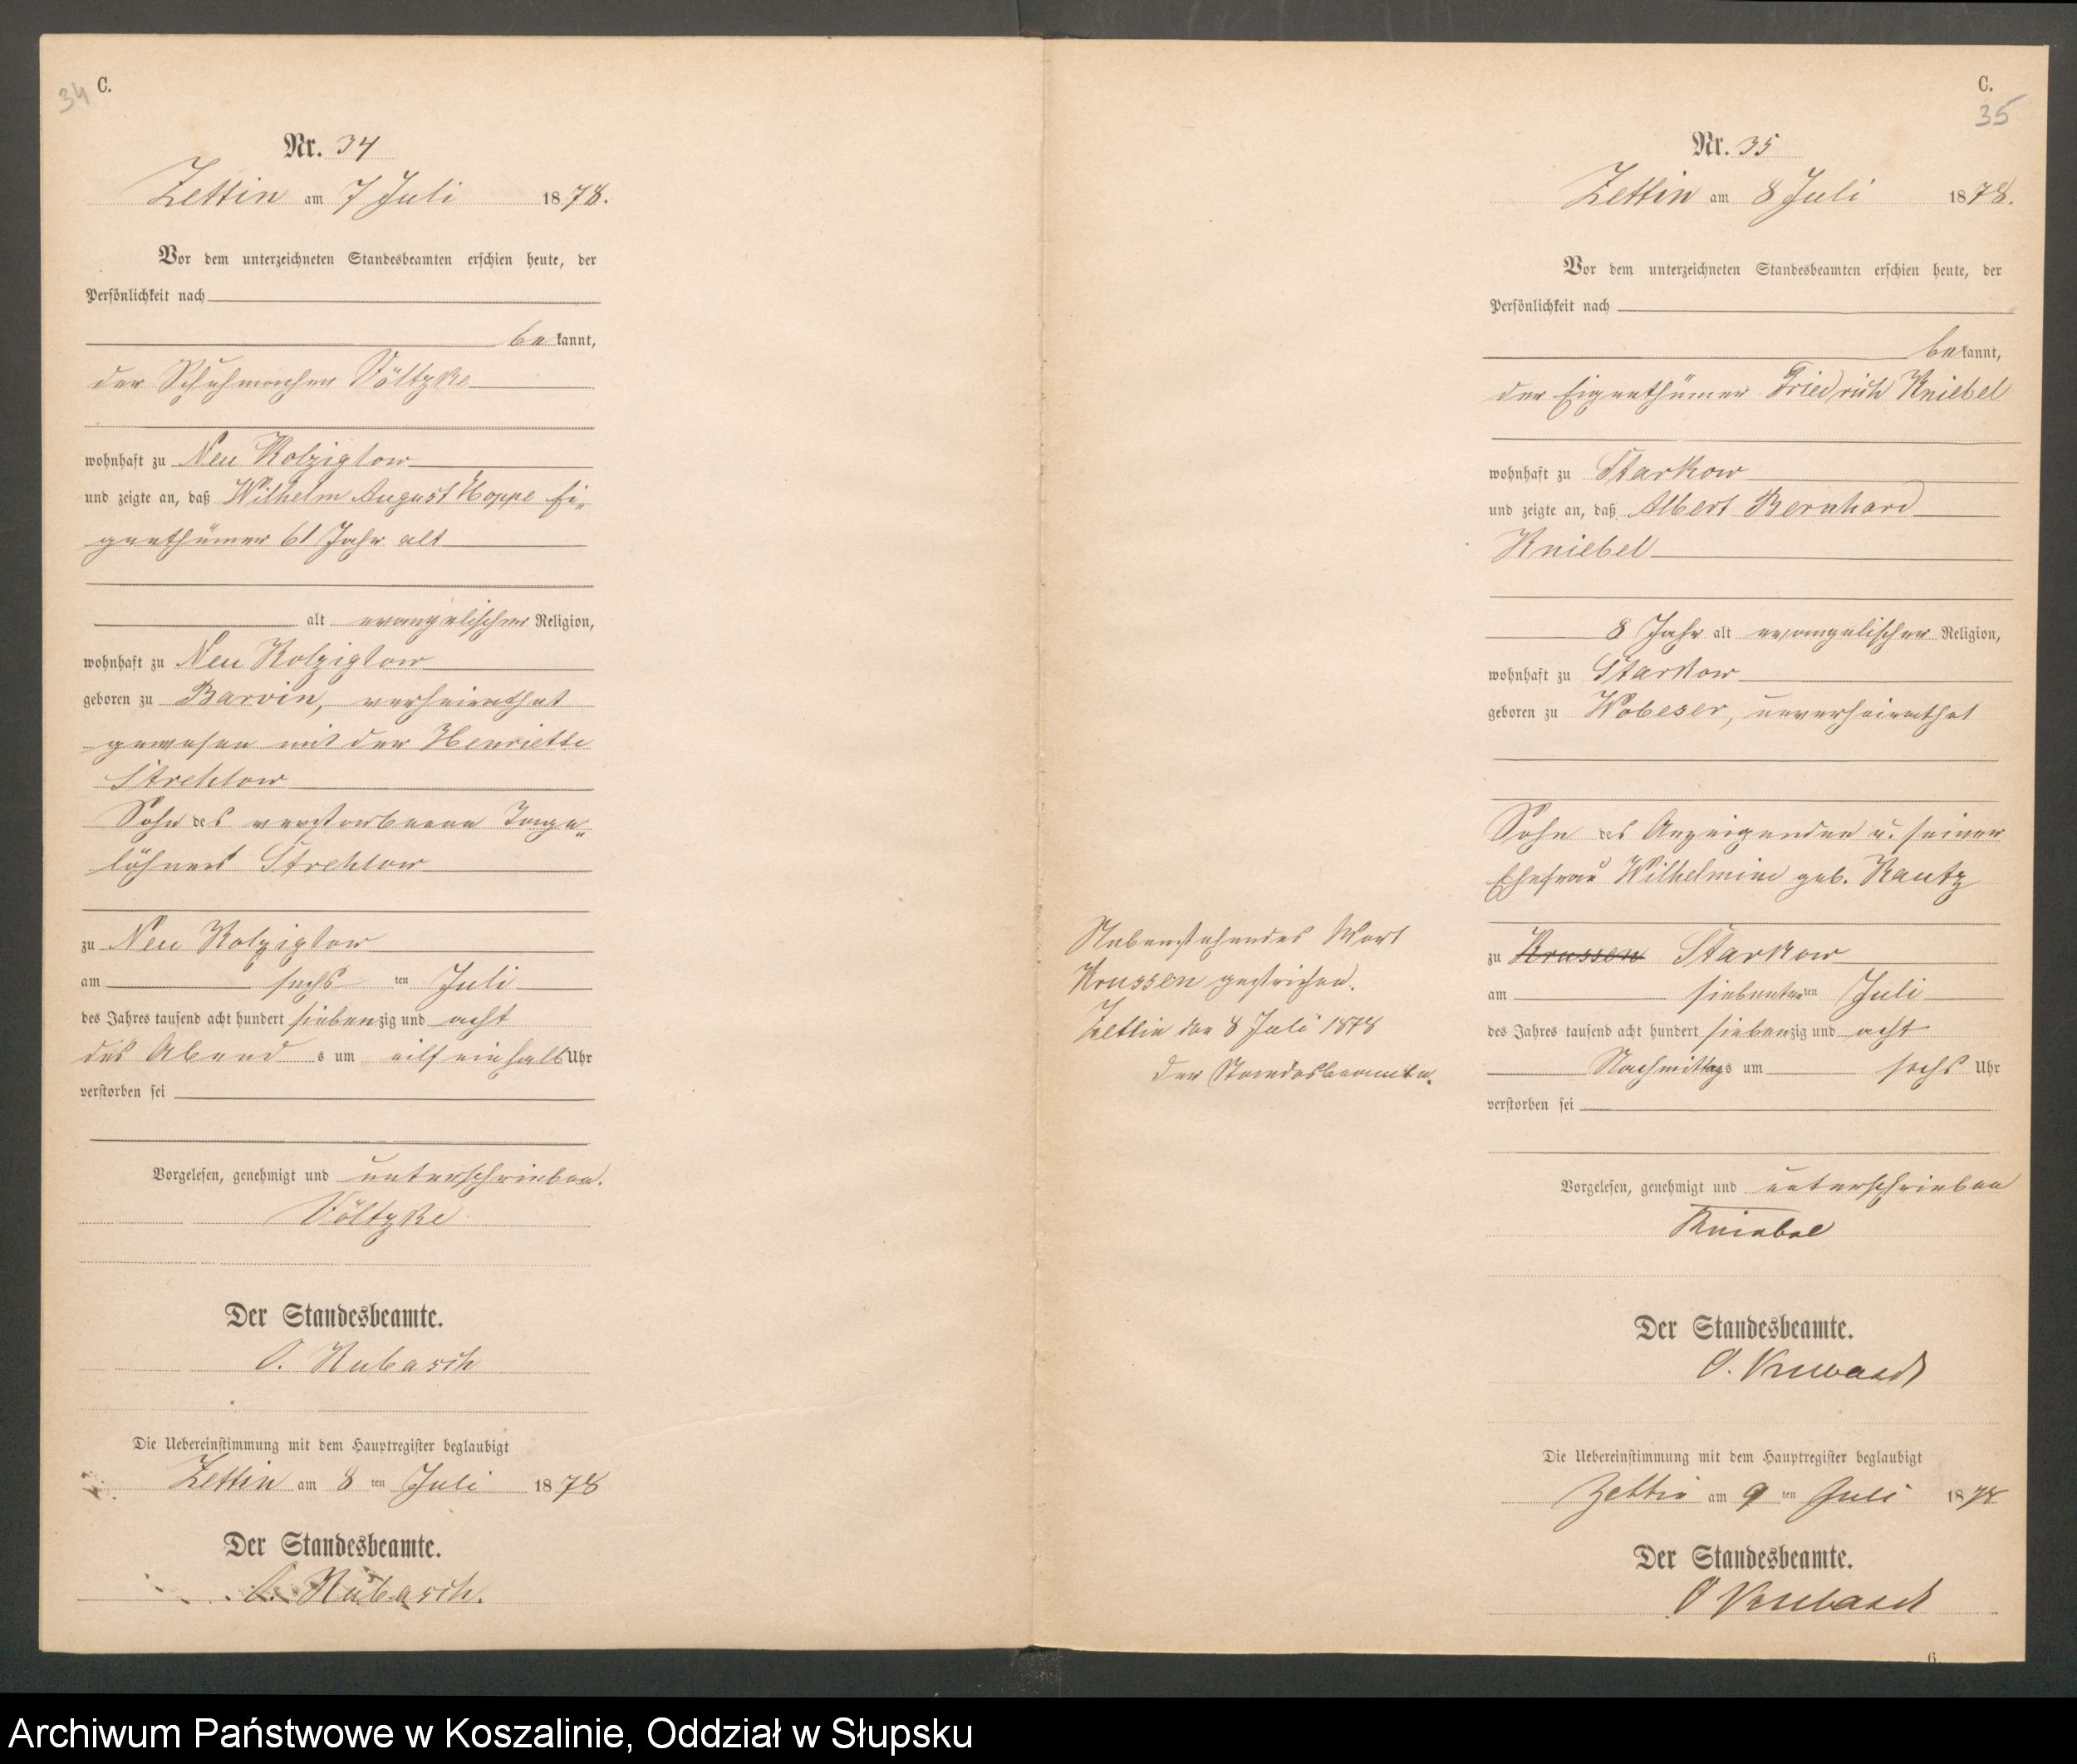 34
C.
Nr. 34
Zettin am 7 Juli 1878.
Vor dem unterzeichneten Standesbeamten erschien heute, der
Persönlichkeit nach
bekannt,
der Schuhmacher Völtzke
wohnhaft zu Neu Kolziglow
und zeigte an, daß Wilhelm August Hoppe Ei„
genthümer 61 Jahr alt
alt evangelischer Religion,
wohnhaft zu Neu Kolziglow
geboren zu Barvin, verheirathet
gewesen mit der Henriette
Strehlow
Sohn des verstorbenen Tage„
löhners Strehlow
zu Neu Kolziglow
am sechsten Juli
des Jahres tausend acht hundert siebenzig und acht
des Abends um eilf einhalb Uhr
verstorben sei
Vorgelesen, genehmigt und unterschrieben.
Völtzke
Der Standesbeamte.
O. Kubasch
Die Uebereinstimmung mit dem Hauptregister beglaubigt
Zettin am 8ten Juli 1878
Der Standesbeamte.
O. Kubasch.
C.
35
Nr. 35
Zettin am 8 Juli 1878.
Vor dem unterzeichneten Standesbeamten erschien heute, der
Persönlichkeit nach
bekannt,
der Eigenthümer Friedrich Kniebel
wohnhaft zu Starkow
und zeigte an, daß Albert Bernhard
Kniebel
8 Jahr alt evangelischer Religion,
wohnhaft zu Starkow
geboren zu Wobeser, unverheirathet
Sohn des Anzeigenden u. seiner
Ehefrau Wilhelmine geb. Kautz
zu Krussen Starkow
am siebenten ten Juli
des Jahres tausend acht hundert siebenzig und acht
Nachmittags um sechs Uhr
verstorben sei
Nebenstehendes Wort
Krussen gestrichen.
Zettin den 8 Juli 1878
Der Standesbeamte.
Vorgelesen, genehmigt und unterschrieben
Kniebel
Der Standesbeamte.
O. Kubasch
Die Uebereinstimmung mit dem Hauptregister beglaubigt
Zettin am 9ten Juli 1878
Der Standesbeamte.
O Kubasch
6
Archiwum Państwowe w Koszalinie, Oddział w Słupsku